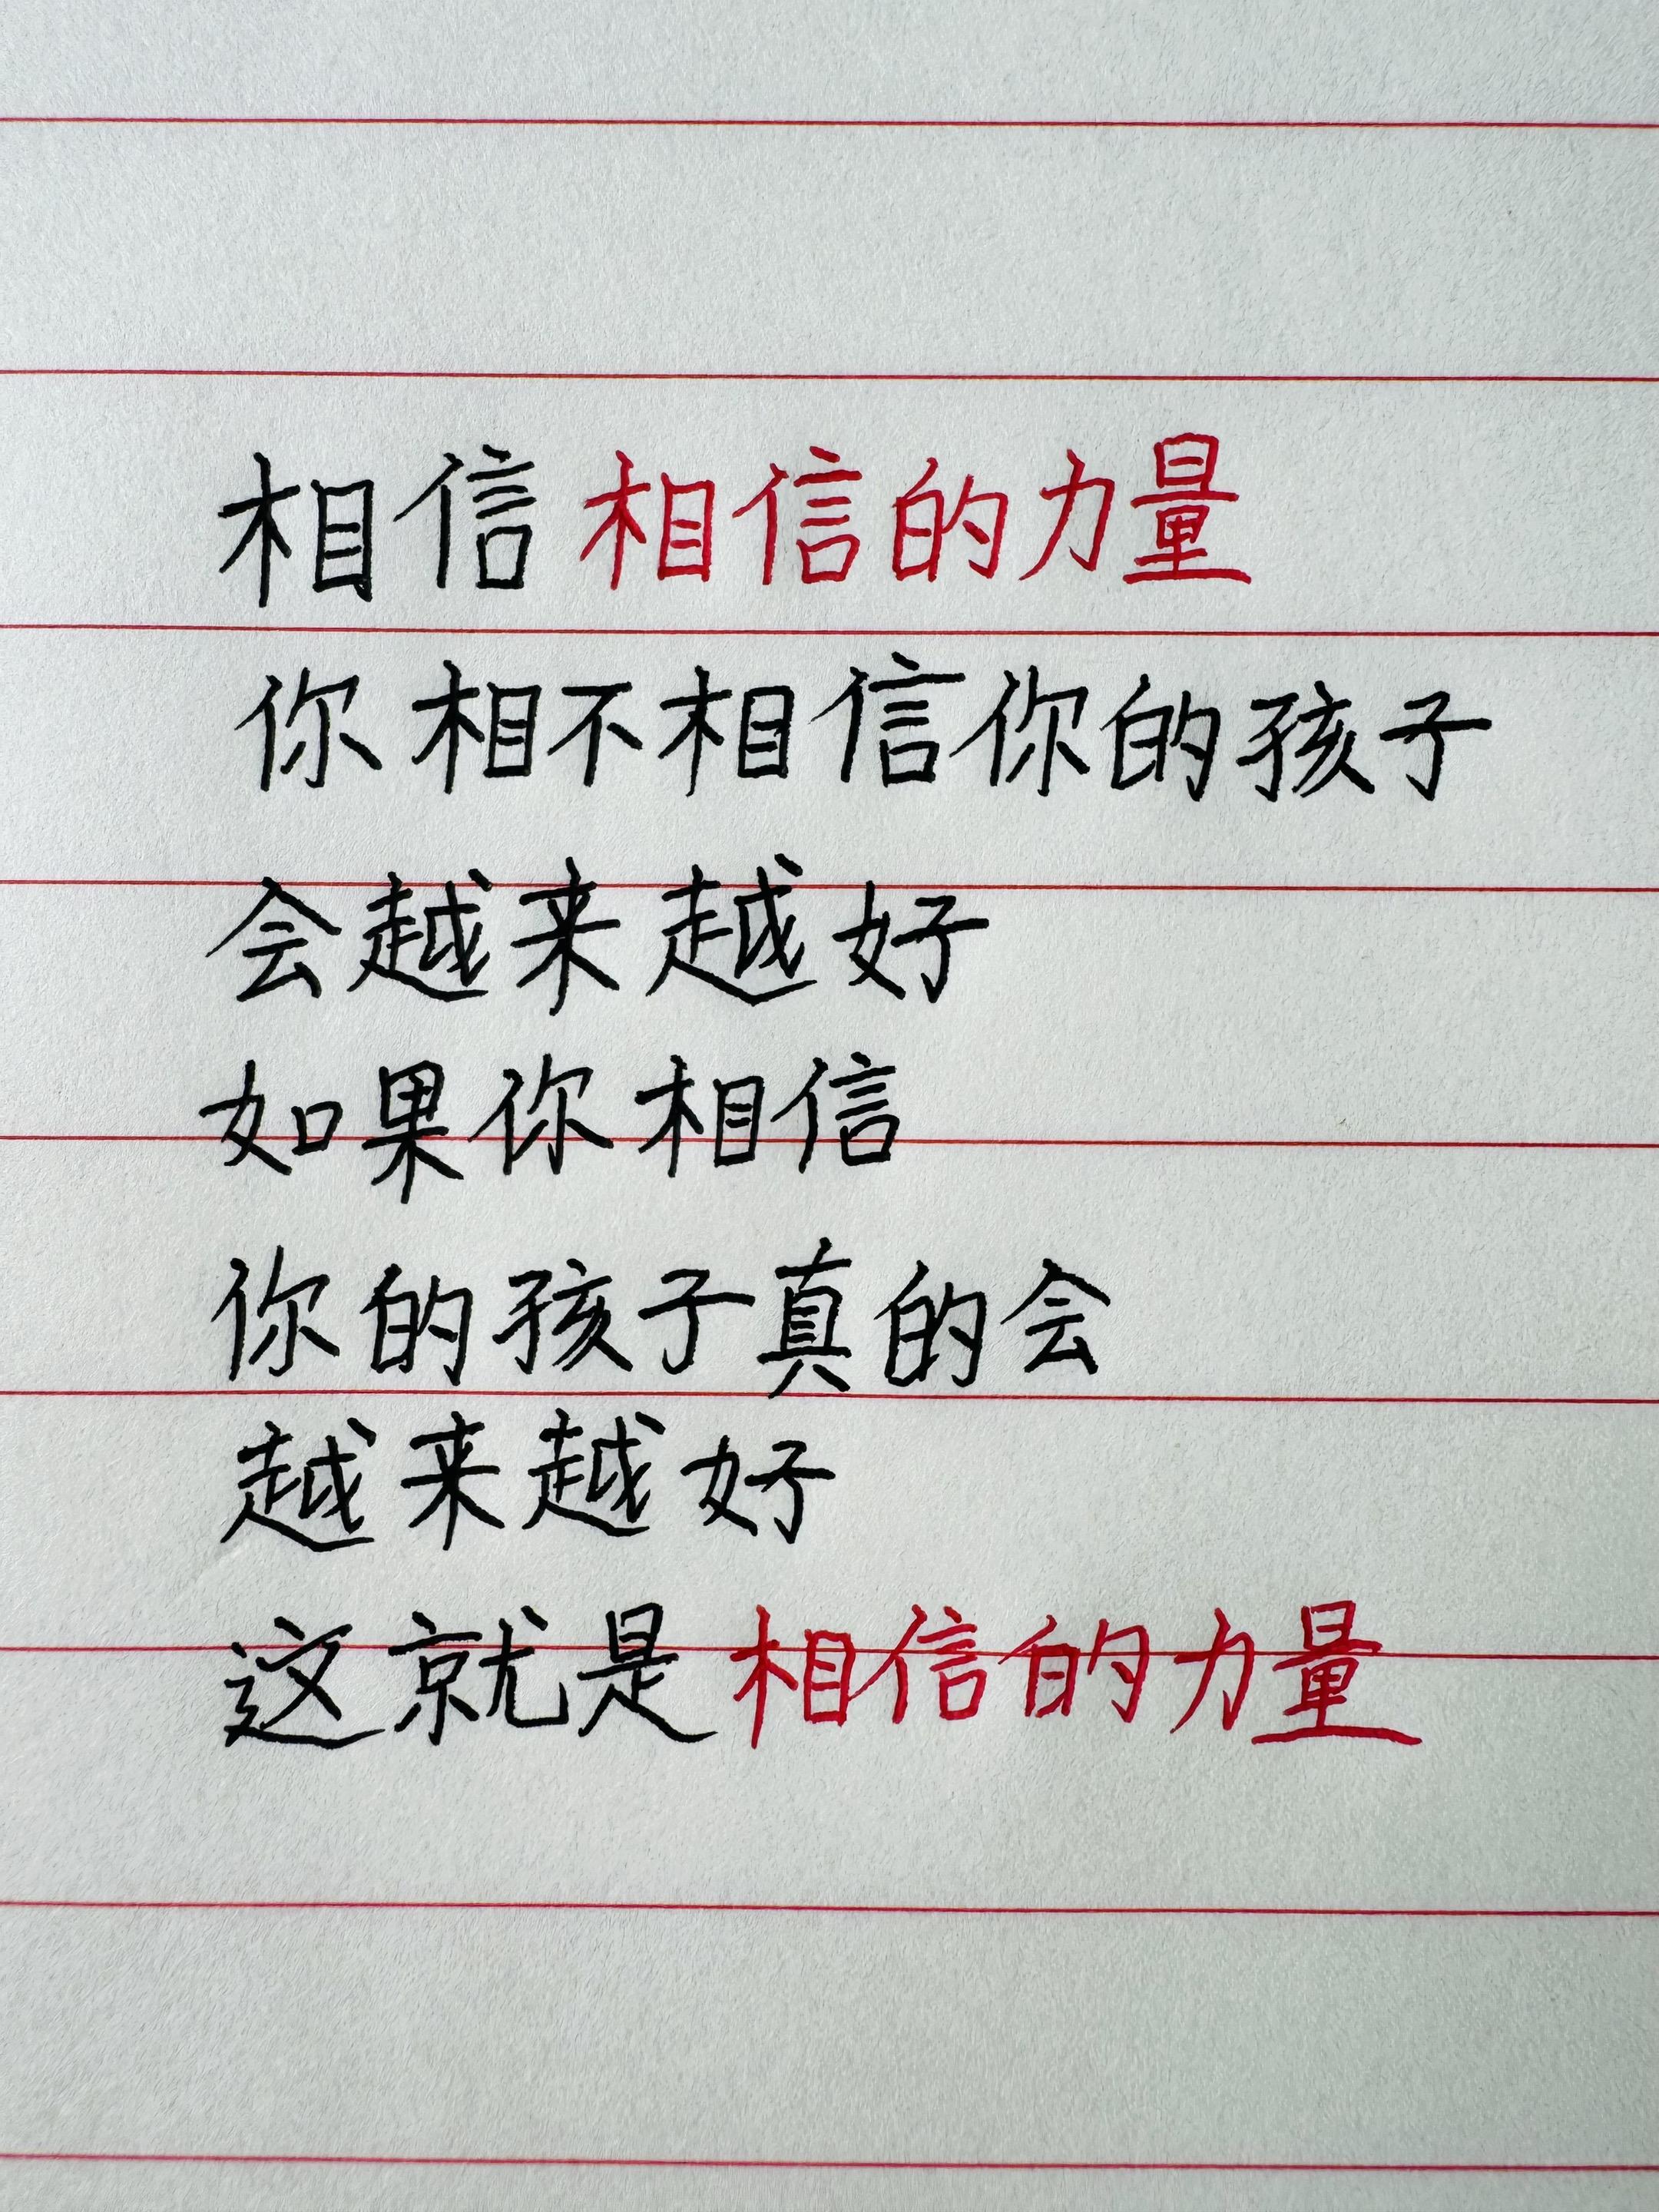 相信 相信的力量
你相不相信你的孩子
会越来越好
如果你相信
你的孩子真的会
越来越好
这就是相信的力量